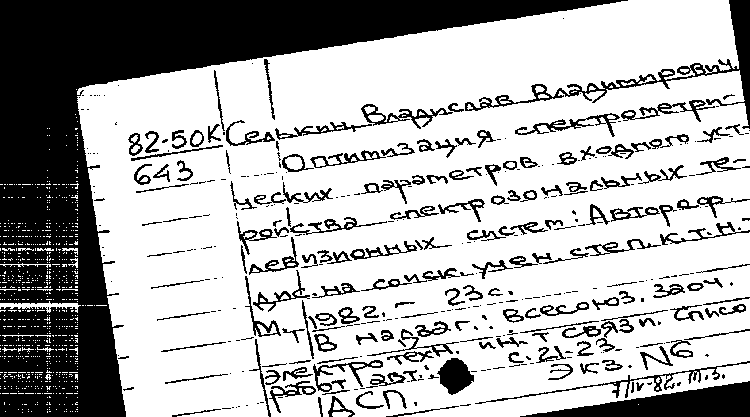 82-50К
643
Селькин, Владислав Владимирович.
Оптимизация спектрометри-
ческих параметров входного уст-
ройства спектрозональных те-
левизионных систем: Автореф.
дис. на соиск. учен. степ. к.т.н.-
М., 1982. - 23 с.
В надзаг.: Всесоюз. заоч.
электротехн. ин-т связи. Списо
работ авт.: с. 21-23
ДСП. Экз. N6.
7/IV-82. т.з.